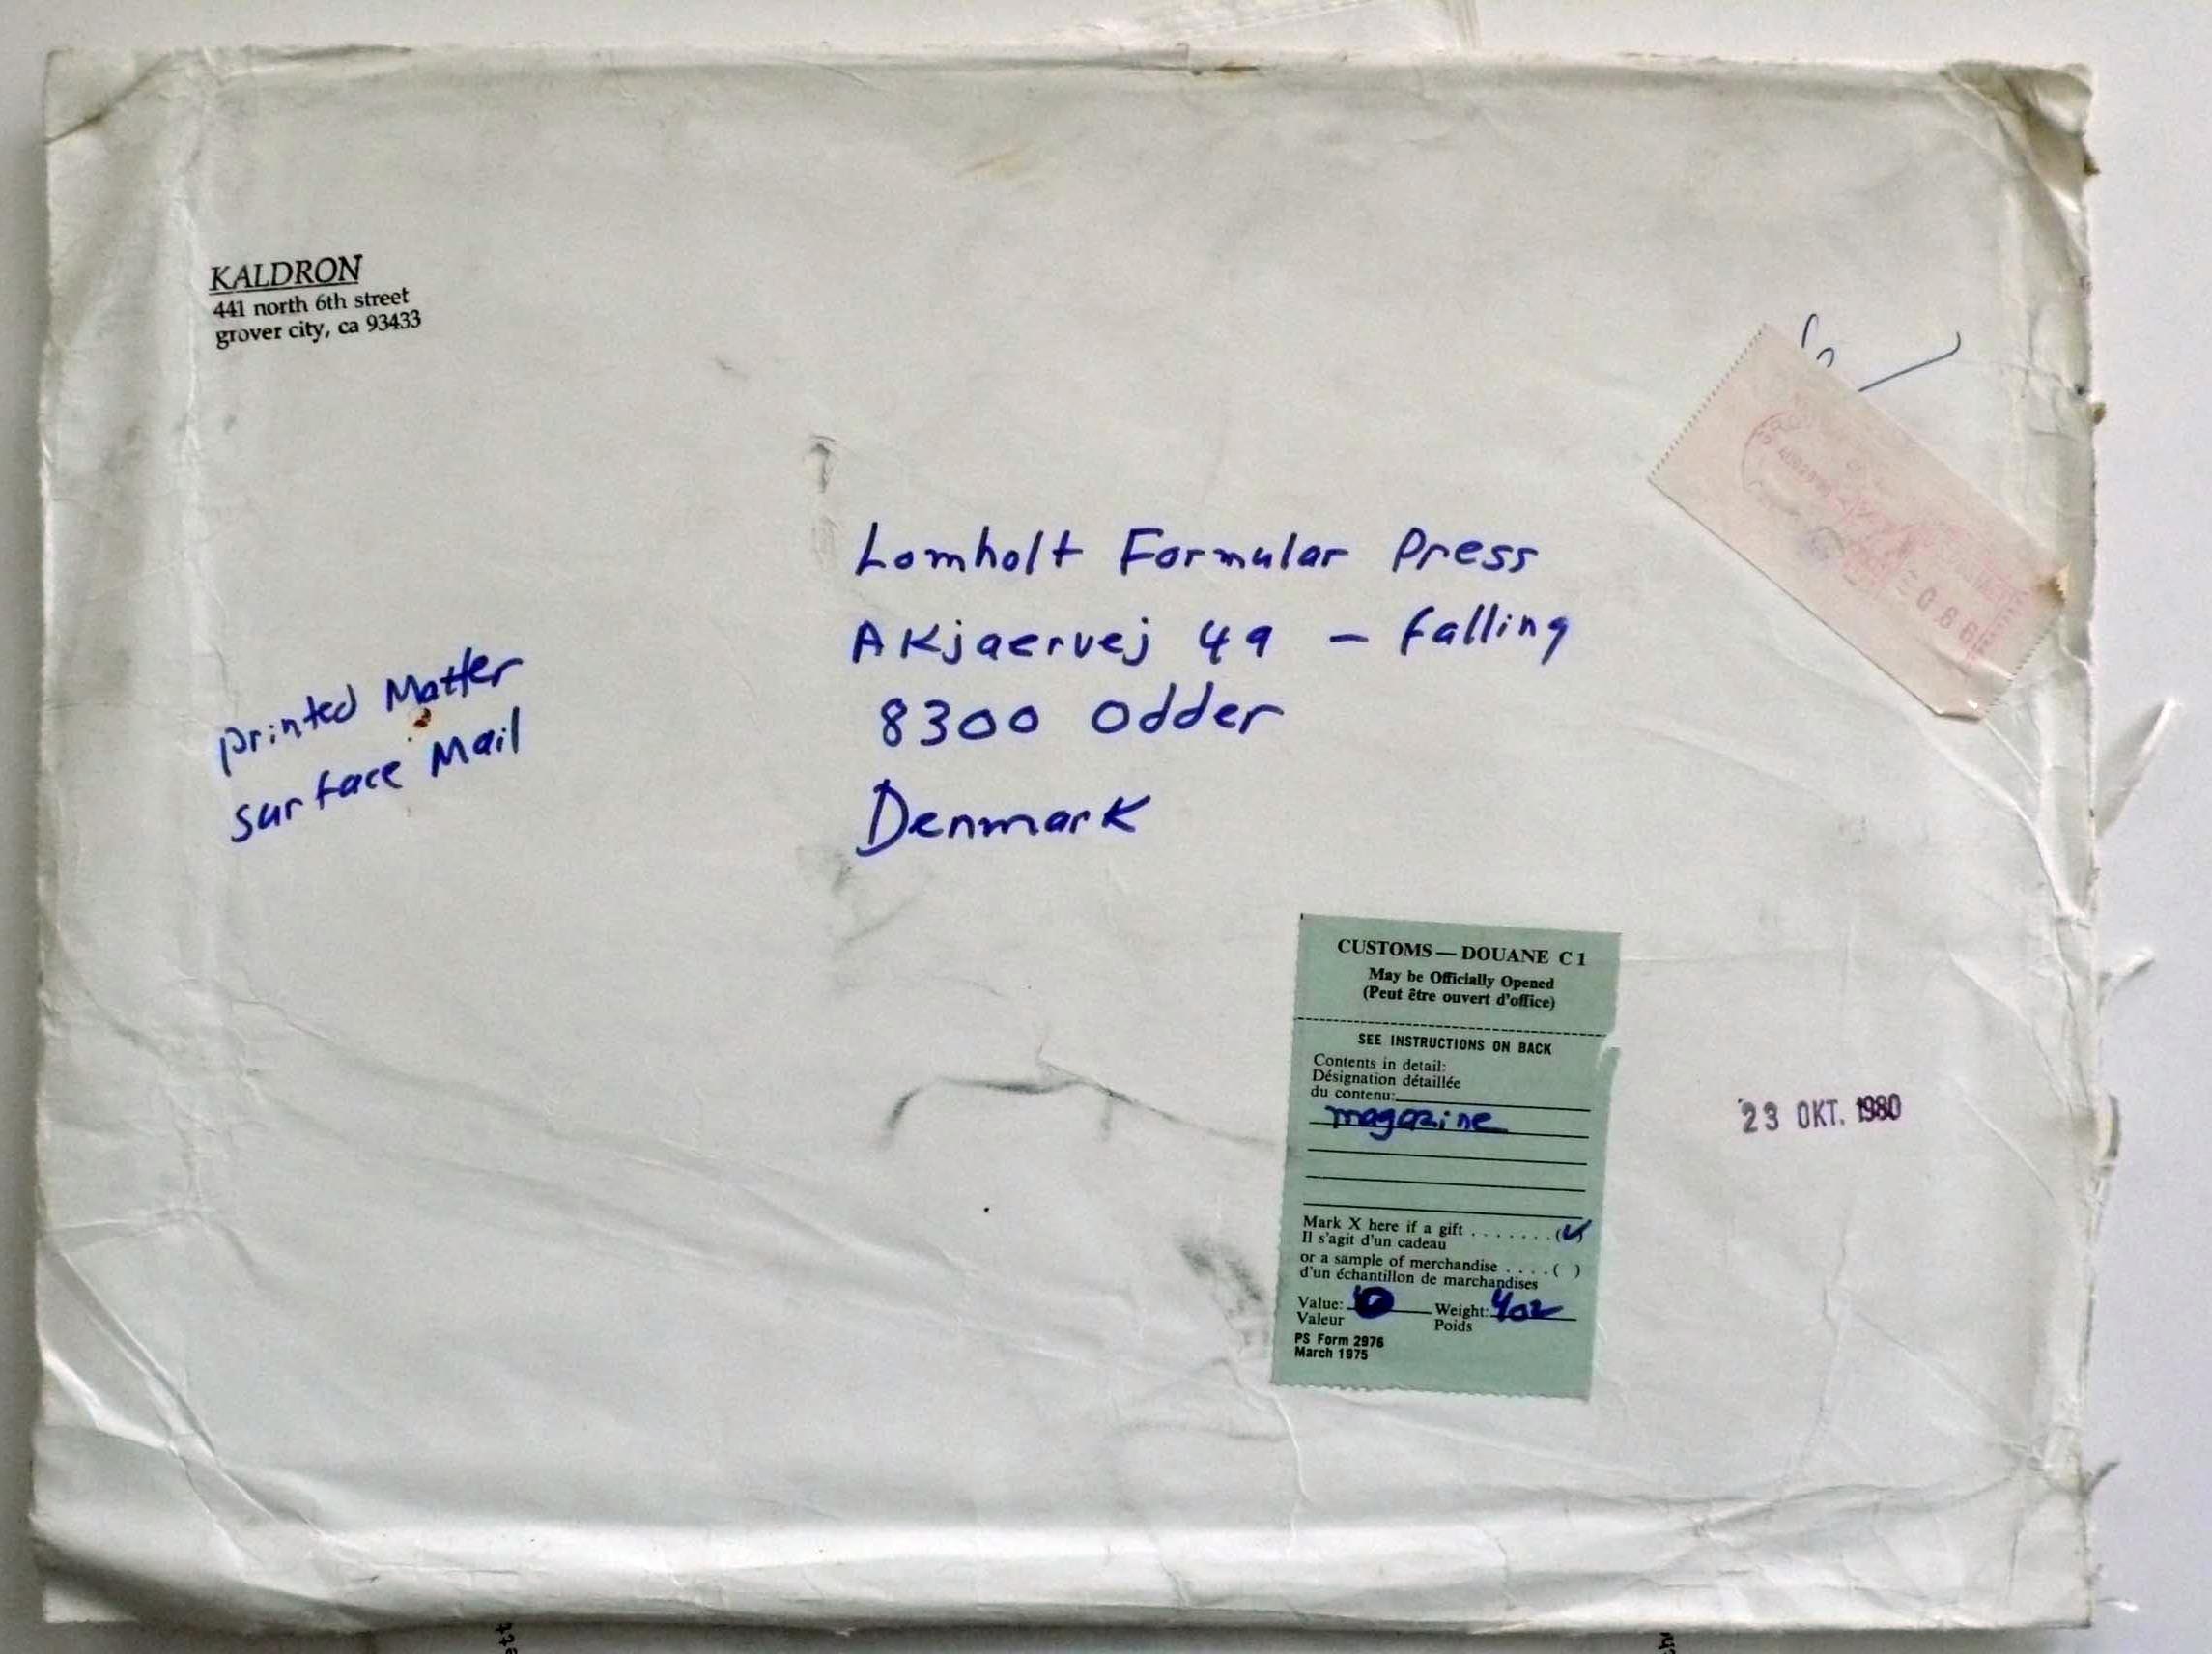 KALDRON
441 north 6th street
grover city, ca 93433
Lomholt Formular Press
AKjaervej 49 — falling
8300 Odder
Denmark
printed Matter
surface Mail
CUSTOMS — DOUANE C 1
May be Officially Opened
(Peut être ouvert d'office)
SEE INSTRUCTIONS ON BACK
Contents in detail:
Désignation détaillée
du contenu:
magazine
Mark X here if a gift . . . . . . . (✓)
Il s'agit d'un cadeau
or a sample of merchandise . . . . ( )
d'un échantillon de marchandises
Value: 0 Weight: 4oz
Valeur Poids
PS Form 2976
March 1975
23 OKT. 1980